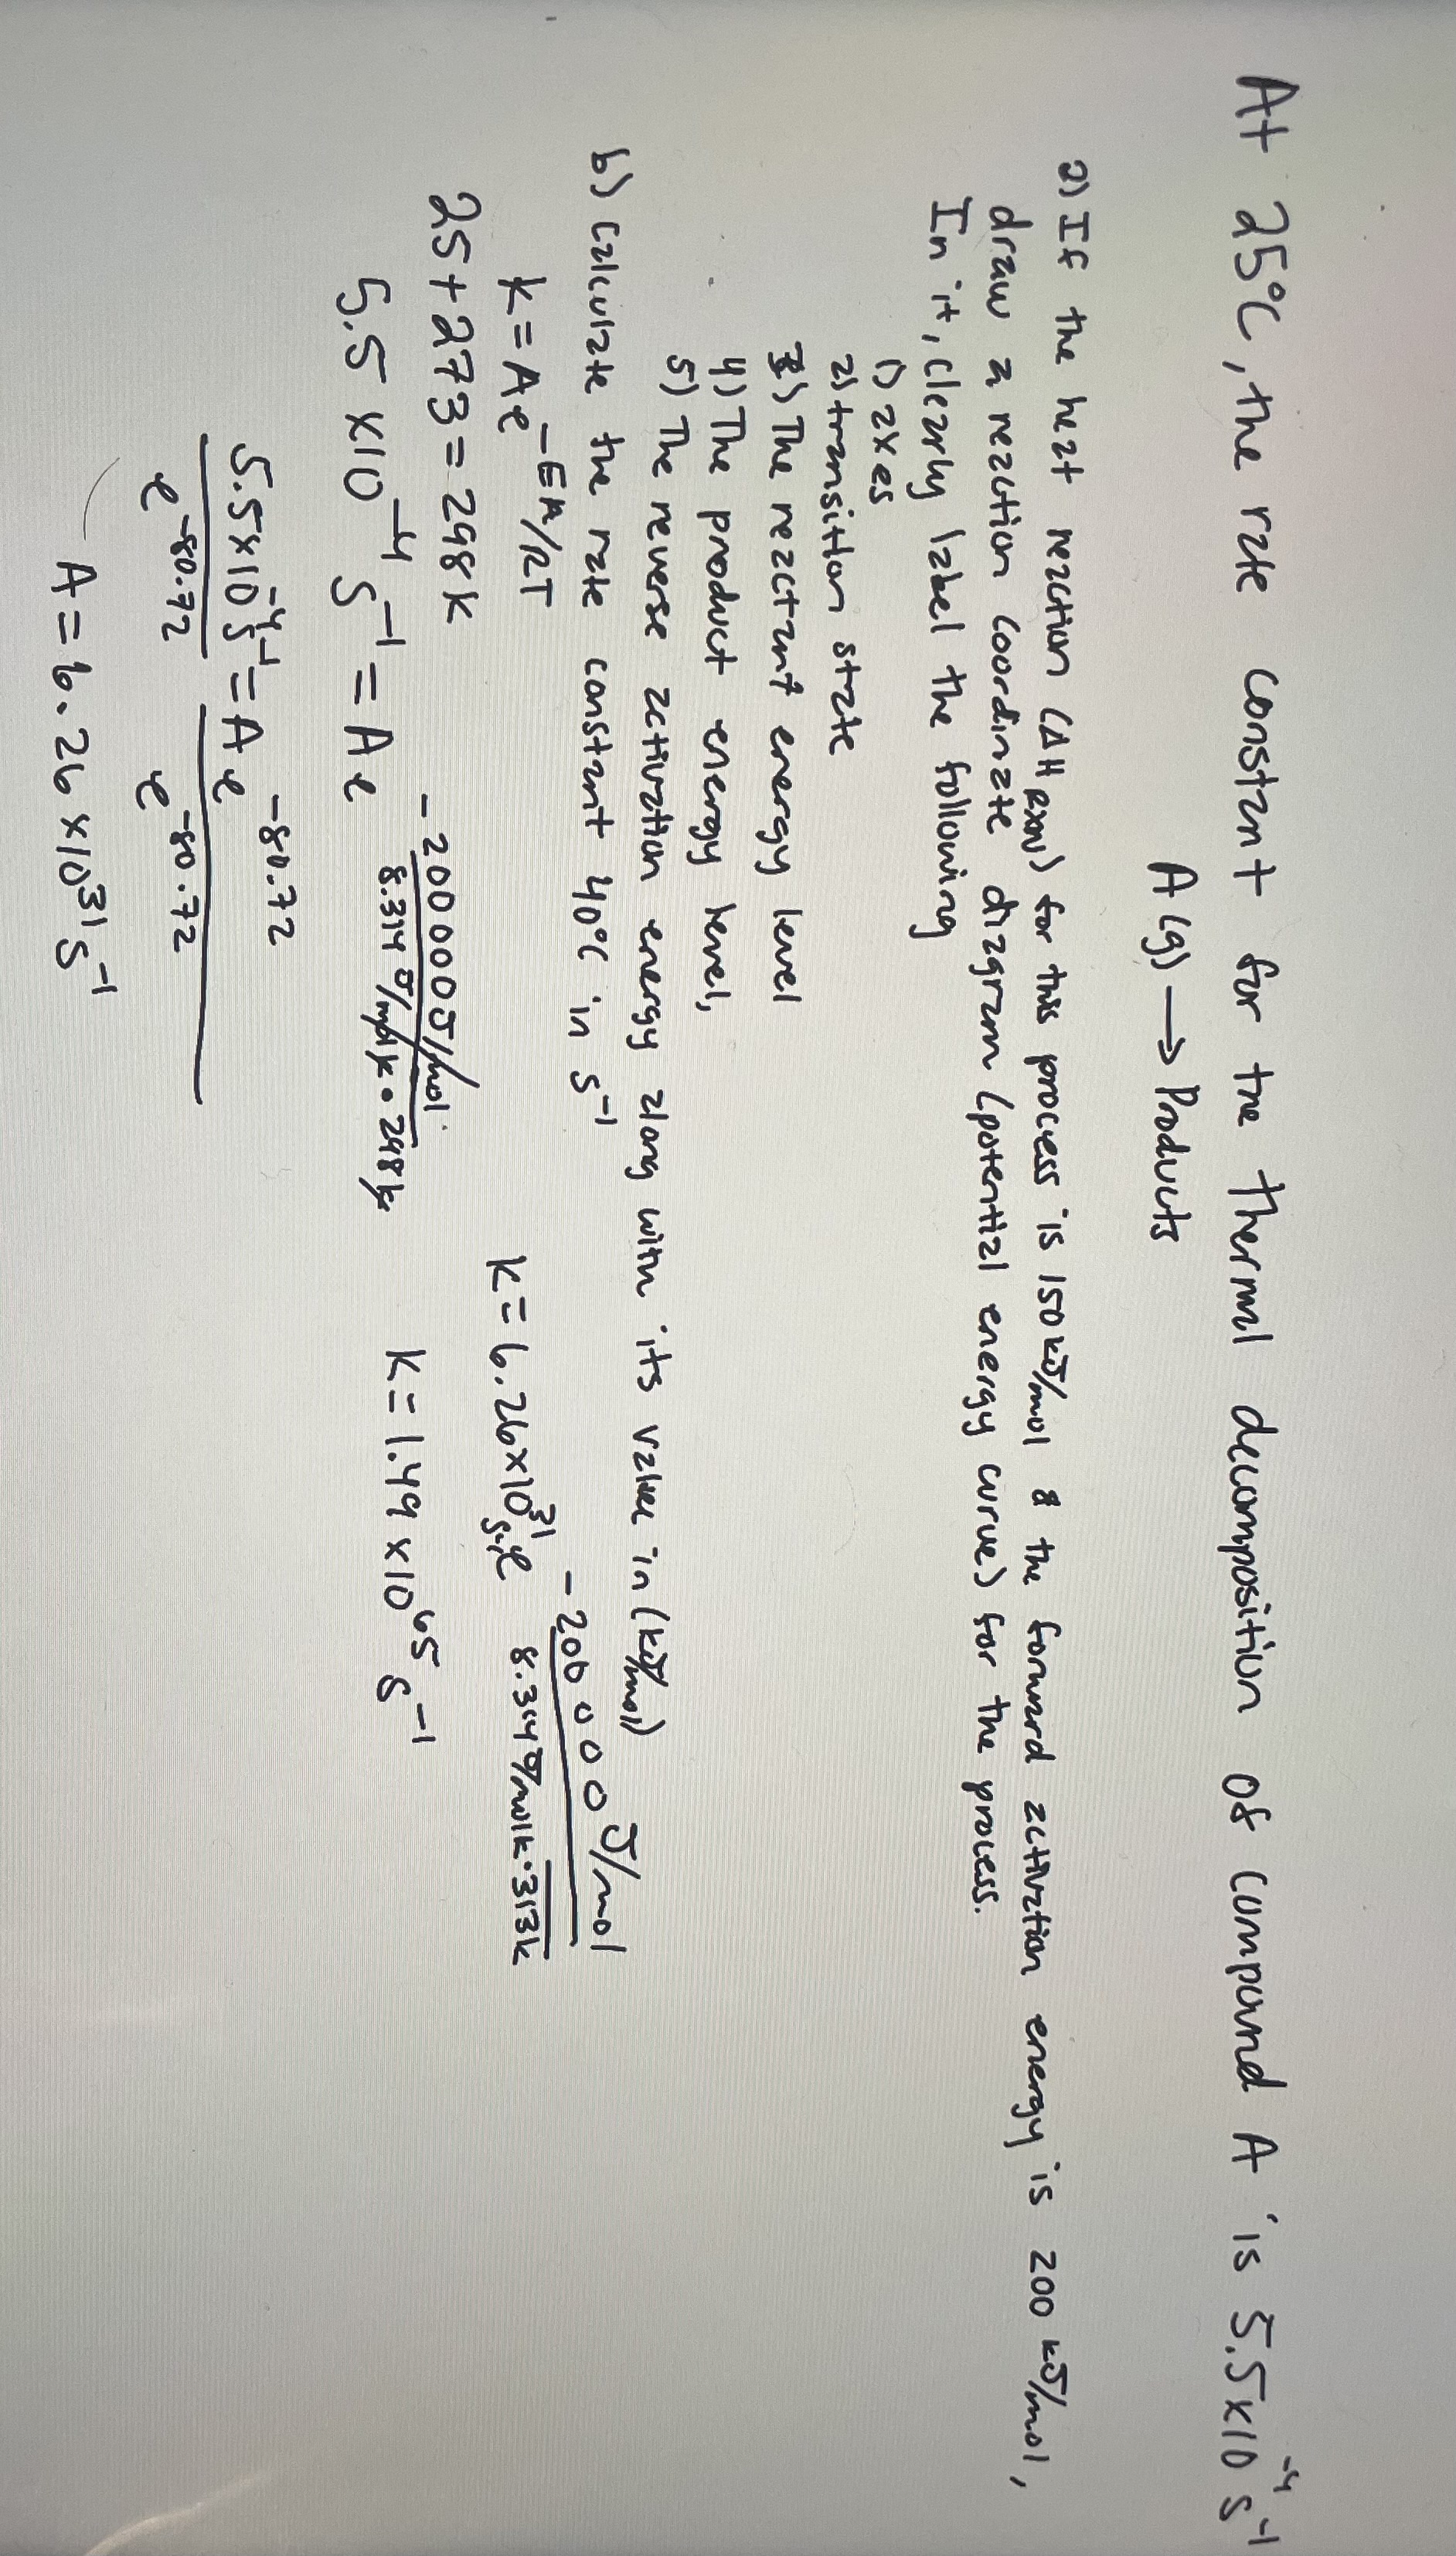 At 25°C, the rate constant for the thermal decomposition of compound A is 5.5x10⁻⁴ s⁻¹
A (g) → Products
a) If the heat reaction (ΔH RXN) for this process is 150 kJ/mol & the forward activation energy is 200 kJ/mol,
draw a reaction coordinate diagram (potential energy curve) for the process.
In it, clearly label the following
1) axes
2) transition state
3) The reactant energy level
4) The product energy level,
5) The reverse activation energy along with its value in (kJ/mol)
b) calculate the rate constant 40°C in s⁻¹
k = A e^-EA/RT
25 + 273 = 298 K
5.5 x10⁻⁴ s⁻¹ = A e^-200000 J/mol / 8.314 J/mol K • 298 K
5.5x10⁻⁴ s⁻¹ / e^-80.72 = A e^-80.72 / e^-80.72
A = 6.26 x10³¹ s⁻¹
k = 6.26x10³¹ s⁻¹ e^-200000 J/mol / 8.314 J/mol K • 313 K
k = 1.49 x10⁶⁵ s⁻¹